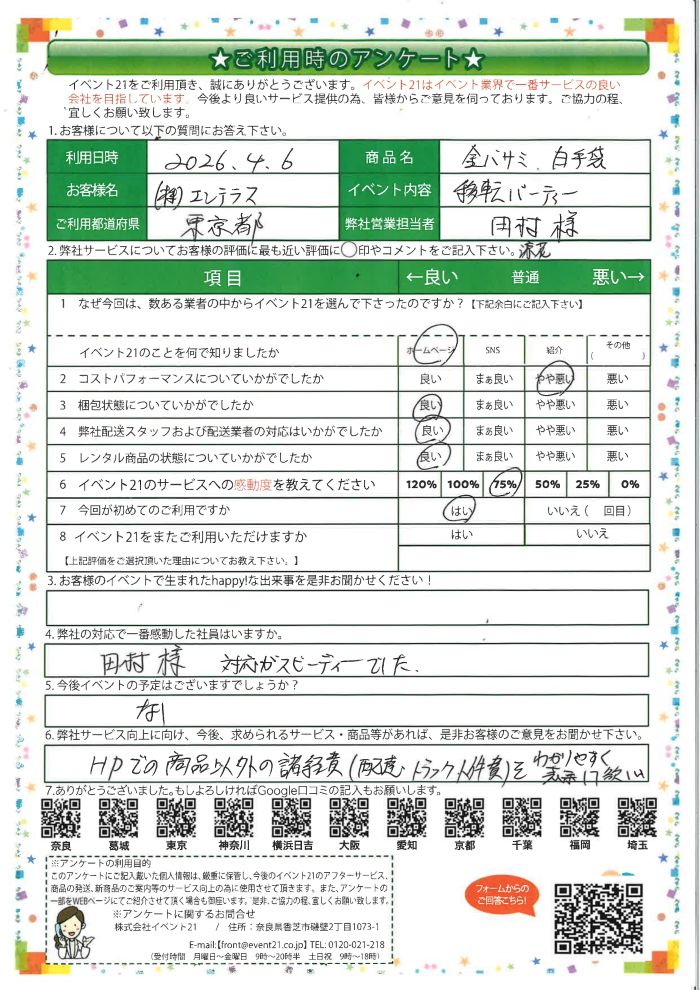 ★ご利用時のアンケート★
イベント21をご利用頂き、誠にありがとうございます。イベント21はイベント業界で一番サービスの良い
会社を目指しています。今後より良いサービス提供の為、皆様からご意見を伺っております。ご協力の程、
宜しくお願い致します。
1.お客様について以下の質問にお答え下さい。
利用日時 2026.4.6 商品名 金バサミ、白手袋
お客様名 (株)エンテラス イベント内容 移転パーティー
ご利用都道府県 東京都 弊社営業担当者 田村様
2.弊社サービスについてお客様の評価に最も近い評価に○印やコメントをご記入下さい。
項目 ←良い 普通 悪い→
1 なぜ今回は、数ある業者の中からイベント21を選んで下さったのですか？【下記余白にご記入下さい】
イベント21のことを何で知りましたか ホームページ SNS 紹介 その他( )
2 コストパフォーマンスについていかがでしたか 良い まぁ良い やや悪い 悪い
3 梱包状態についていかがでしたか 良い まぁ良い やや悪い 悪い
4 弊社配送スタッフおよび配送業者の対応はいかがでしたか 良い まぁ良い やや悪い 悪い
5 レンタル商品の状態についていかがでしたか 良い まぁ良い やや悪い 悪い
6 イベント21のサービスへの感動度を教えてください 120% 100% 75% 50% 25% 0%
7 今回が初めてのご利用ですか はい いいえ( 回目)
8 イベント21をまたご利用いただけますか はい いいえ
【上記評価をご選択頂いた理由についてお教え下さい。】
3.お客様のイベントで生まれたhappy!な出来事を是非お聞かせください！
4.弊社の対応で一番感動した社員はいますか。
田村様 対応がスピーディーでした.
5.今後イベントの予定はございますでしょうか？
なし
6.弊社サービス向上に向け、今後、求められるサービス・商品等があれば、是非お客様のご意見をお聞かせ下さい。
HPでの商品以外の諸経費(配達・トラック人件費)をわかりやすく
表示して欲しい
7.ありがとうございました。もしよろしければGoogle口コミの記入もお願いします。
奈良 葛城 東京 神奈川 横浜日吉 大阪 愛知 京都 千葉 福岡 埼玉
※アンケートの利用目的
このアンケートにご記入戴いた個人情報は、厳重に保管し、今後のイベント21のアフターサービス、
商品の発送、新商品のご案内等のサービス向上の為に使用させて頂きます。また、アンケートの
一部をWEBページにてご紹介させて頂く場合も御座います。是非、ご協力の程、宜しくお願い致します。
※アンケートに関するお問合せ
株式会社イベント21 / 住所：奈良県香芝市磯壁2丁目1073-1
E-mail:【front@event21.co.jp】 TEL: 0120-021-218
(受付時間 月曜日〜金曜日 9時〜20時半 土日祝 9時〜18時)
フォームからの
ご回答こちら!